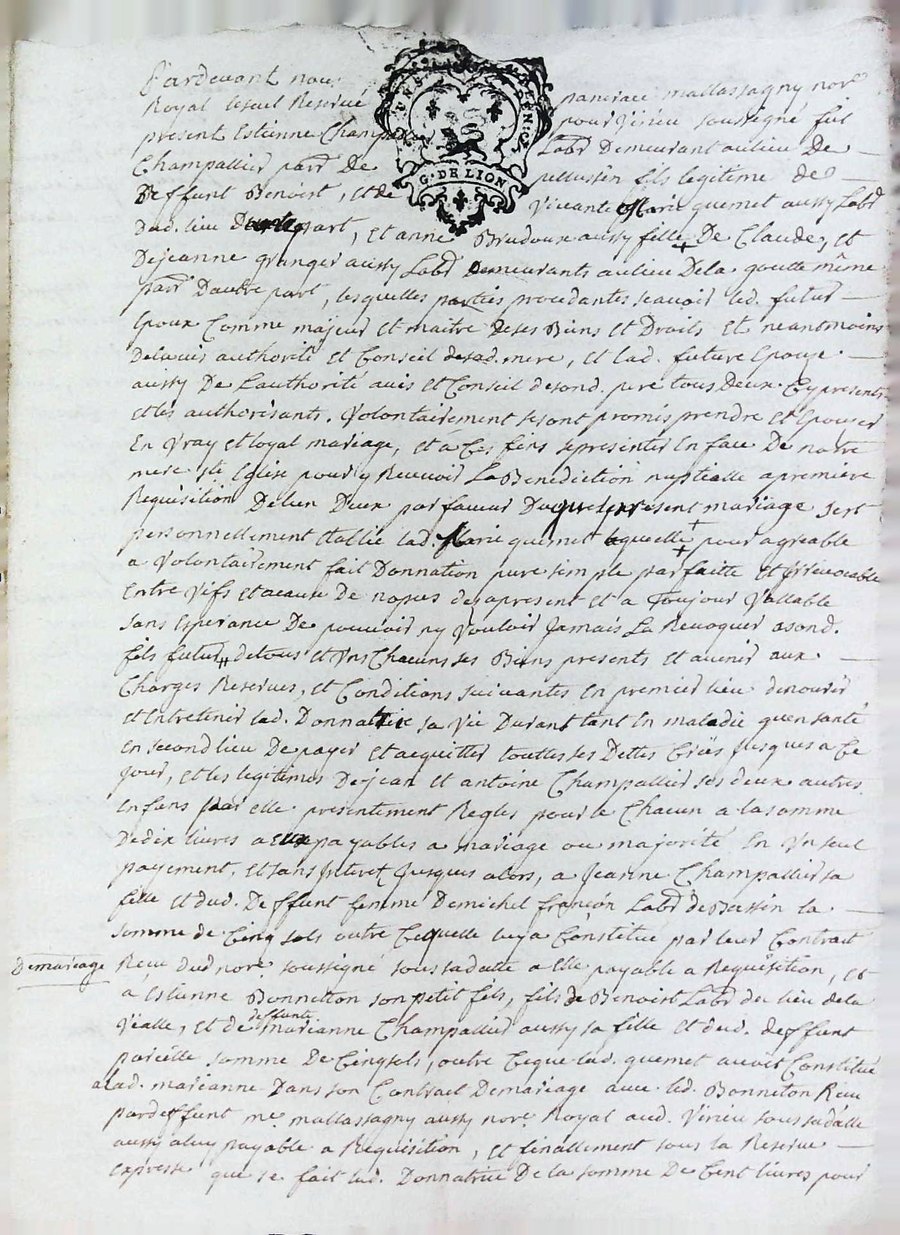 Pardevant nous pancrace mallassagny nore
Royal Reservé pour Virieu soussigné fut
present Estienne Champallier Labr Demeurant au lieu De
Champallier parr De pellussin fils legitime de
Deffunt Benoist, et de Vivante Marie quemet aussy Labr
Dud. lieu D'une part, et anne Brudoux aussy fille + De Claude, et
De jeanne granger aussy Labr Demeurants au lieu De la goutte même
parr D'autre part, lesquelles parties procedantes scavoir led. futur
Epoux Comme majeur et maitre De ses Biens et Droits et neantmoins
De lavis authorité et Conseil de sad. mere, et lad. future Epouse
aussy De Lauthorité avis et Conseil de sond. pere tous Deux Cy presents
et les authorisants. Volontairement se sont promis prendre et Epouser
En Vray et loyal mariage, et a Ces fins se presenter En face De notre
mere ste Eglise pour y Recevoir La Benediction nuptialle a premiere
Requisition De lun Deux par faveur Du present mariage sest
personnellement Etablie lad. Marie quemet laquelle + pour agreable
a Volontairement fait Donnation pure simple parfaitte et Irrevocable
Entre Vifs et a cause de nopces des apresent et a Toujour Vallable
sans Esperance De pouvoir ny Vouloir Jamais La Revoquer a sond.
fils futur # de tous et Uns Chacuns ses Biens presents et avenir aux
Charges Reserves, et Conditions suivantes En premier lieu de nourir
et Entretenir lad. Donnatrice sa Vie Durant tant En maladie quen santé
En second lieu De payer et acquitter touttes ses Dettes Crées Jusques a Ce
jour, et les legitimes De jean et antoine Champallier ses deux autres
Enfans par elle presentement Reglés pour le Chacun a la somme
De dix livres a Eux payables a mariage ou majorité En Un seul
payement, et sans Interet Jusques alors, a Jeanne Champallier sa
fille et dud. Deffunt femme De michel françon Labr de Bassin la
somme de Cinq sols outre Ce quelle luy a Constitué par leur Contract
De mariage Receu dud nore soussigné sous sa datte a Elle payable a Requisition, et
a Estienne Bonnetton son petit fils, fils de Benoist Labr du lieu de la
Vialle, et de deffunte marianne Champallier aussy sa fille et dud. deffunt
pareille somme De Cinq sols, outre Ce que lad. quemet avoit Constitué
a lad. marianne Dans son Contract De mariage avec led. Bonneton Receu
par deffunt me. mallassagny aussy nore. Royal aud. Virieu sous sa datte
aussy a luy payable a Requisition, et finallement sous la Reserve
expresse que se fait lad. Donnatrice De la somme De Cent livres pour
UNS DEN: CI
G. DE LION